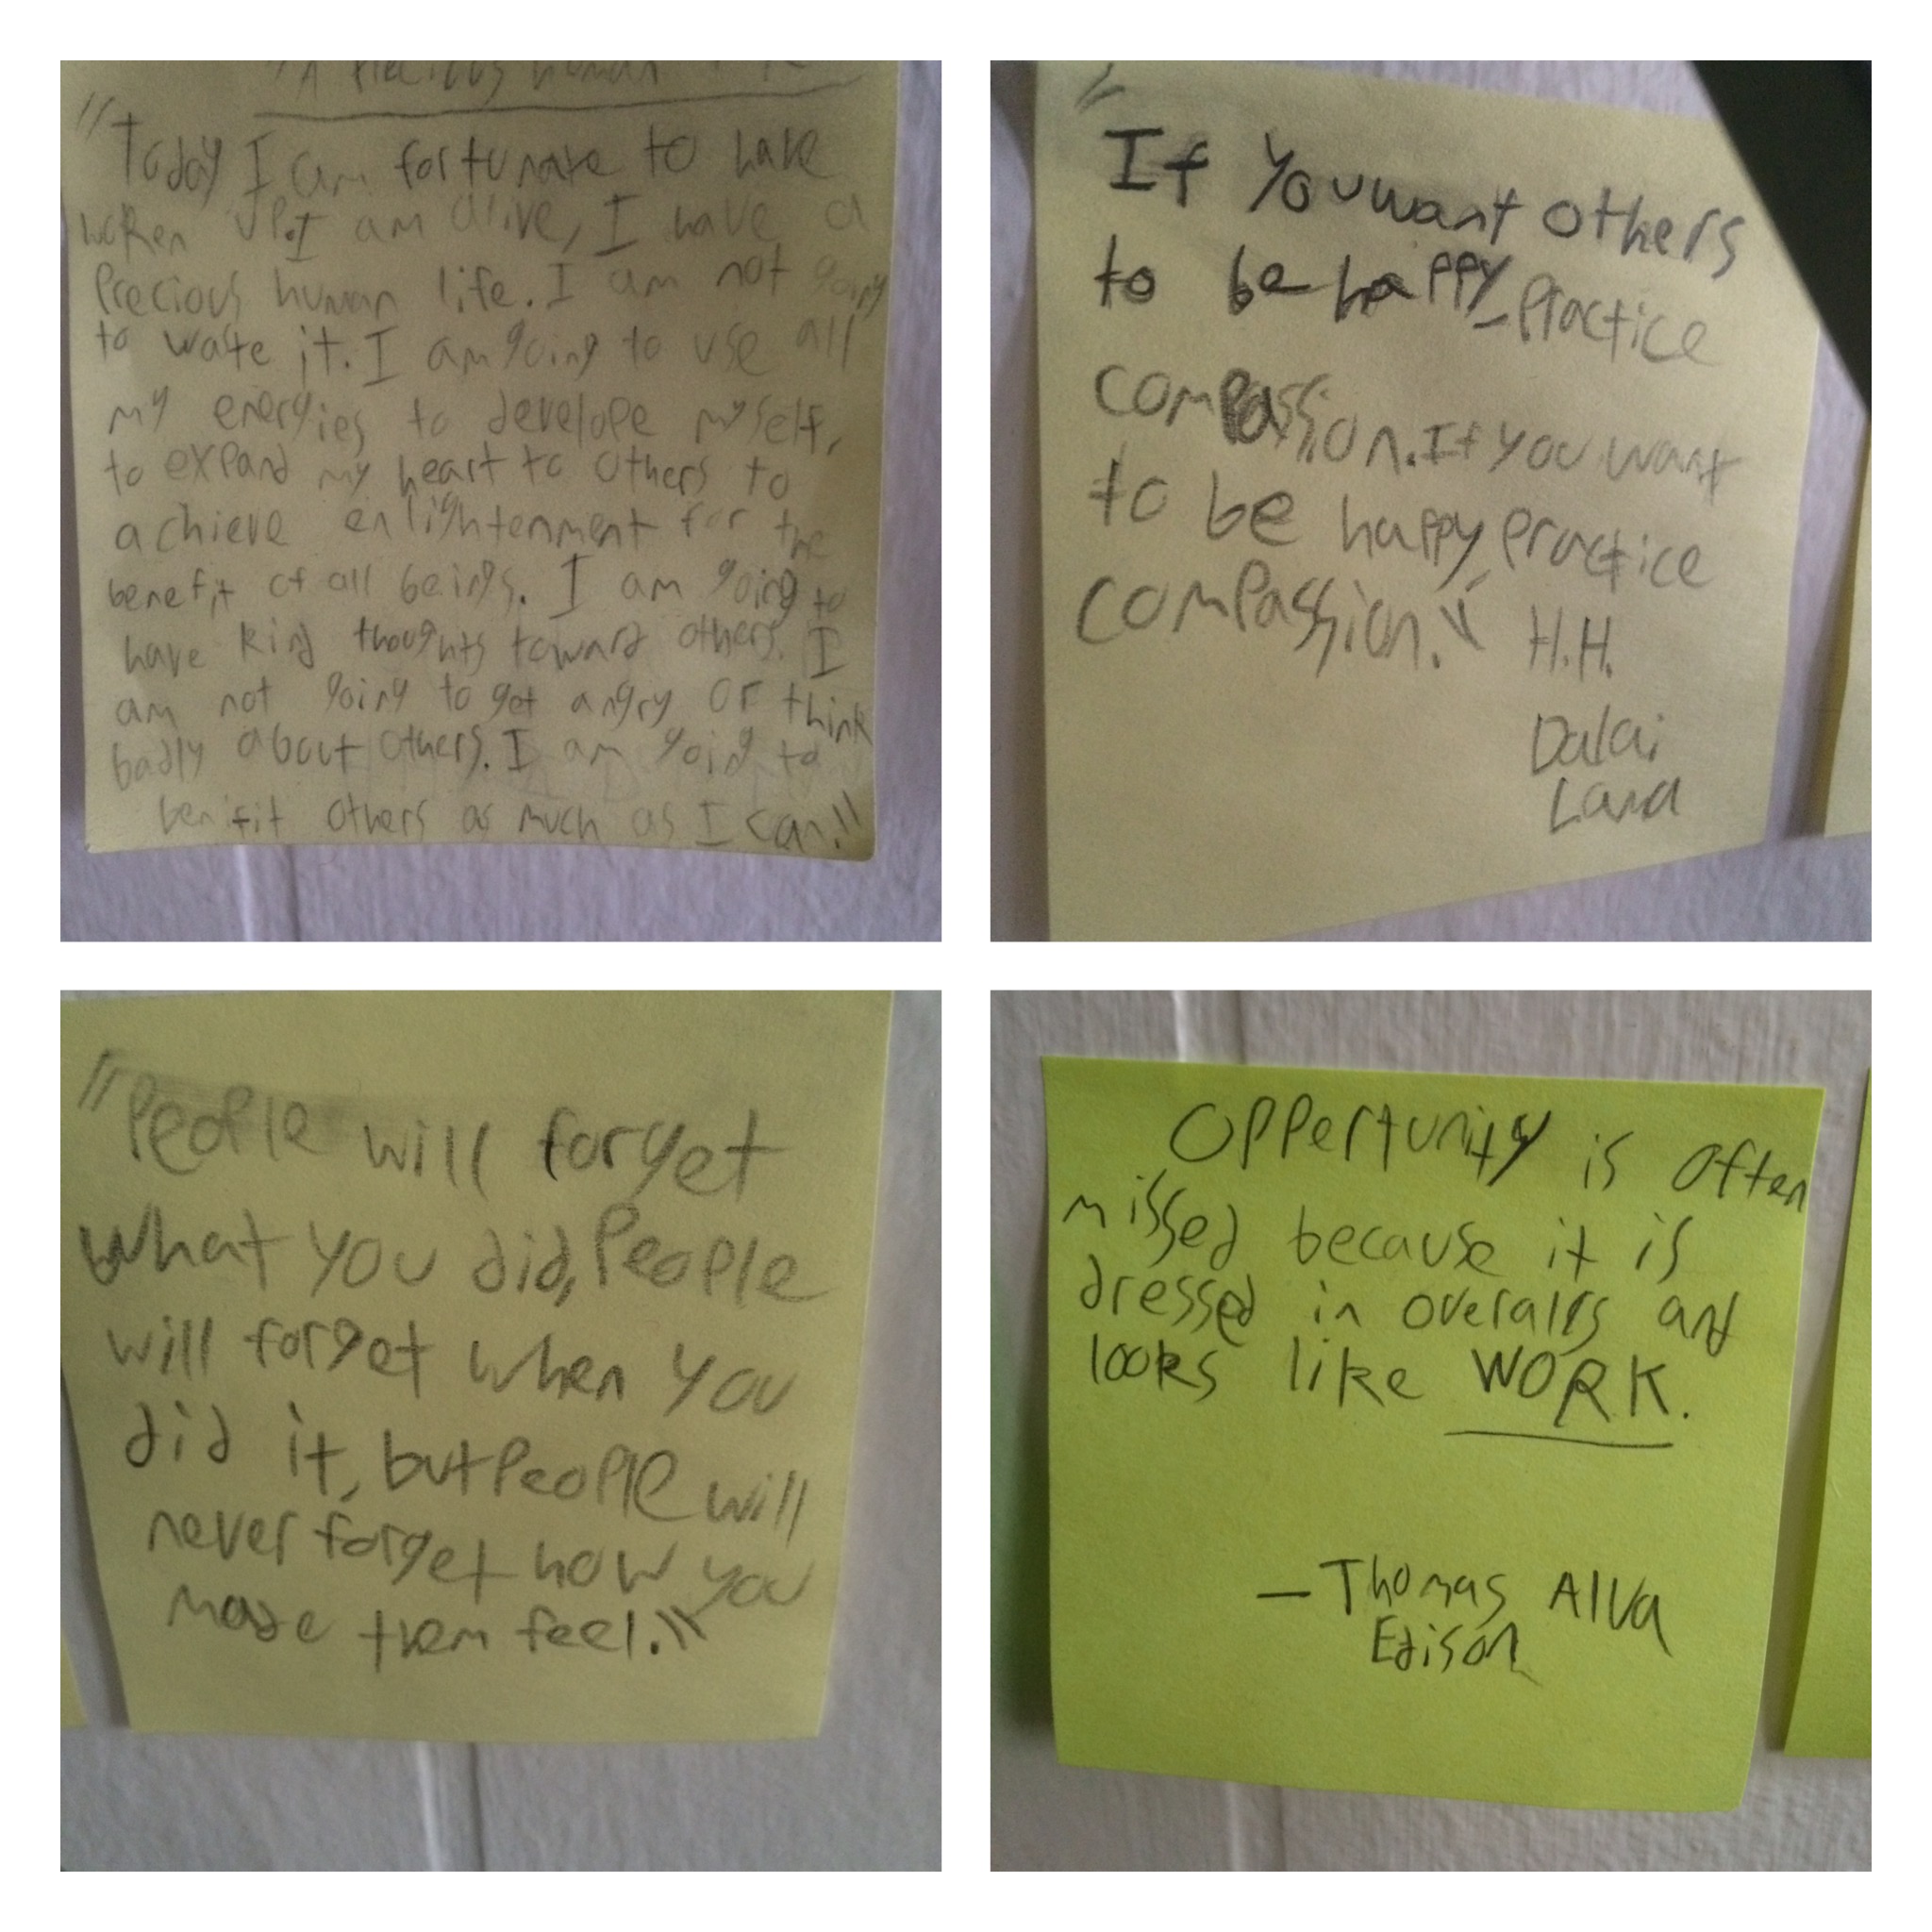 "A Precious human
"Today I am fortunate to have
woken up. I am alive, I have a
precious human life. I am not going
to waste it. I am going to use all
my energies to develope myself,
to expand my heart to others to
achieve enlightenment for the
benefit of all beings. I am going to
have kind thoughts toward others. I
am not going to get angry or think
badly about others. I am going to
benifit others as much as I can."
"
If you want others
to be happy, practice
compassion. If you want
to be happy, practice
compassion." H.H.
Dalai
Lama
"People will forget
what you did, people
will forget when you
did it, but people will
never forget how you
made them feel."
Oppertunity is often
missed because it is
dressed in overalls and
looks like WORK.
- Thomas Alva
Edison